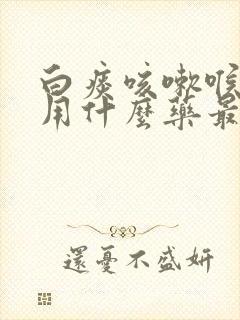 白痰咳嗽喉
用什麼藥最
還憂不盛妍